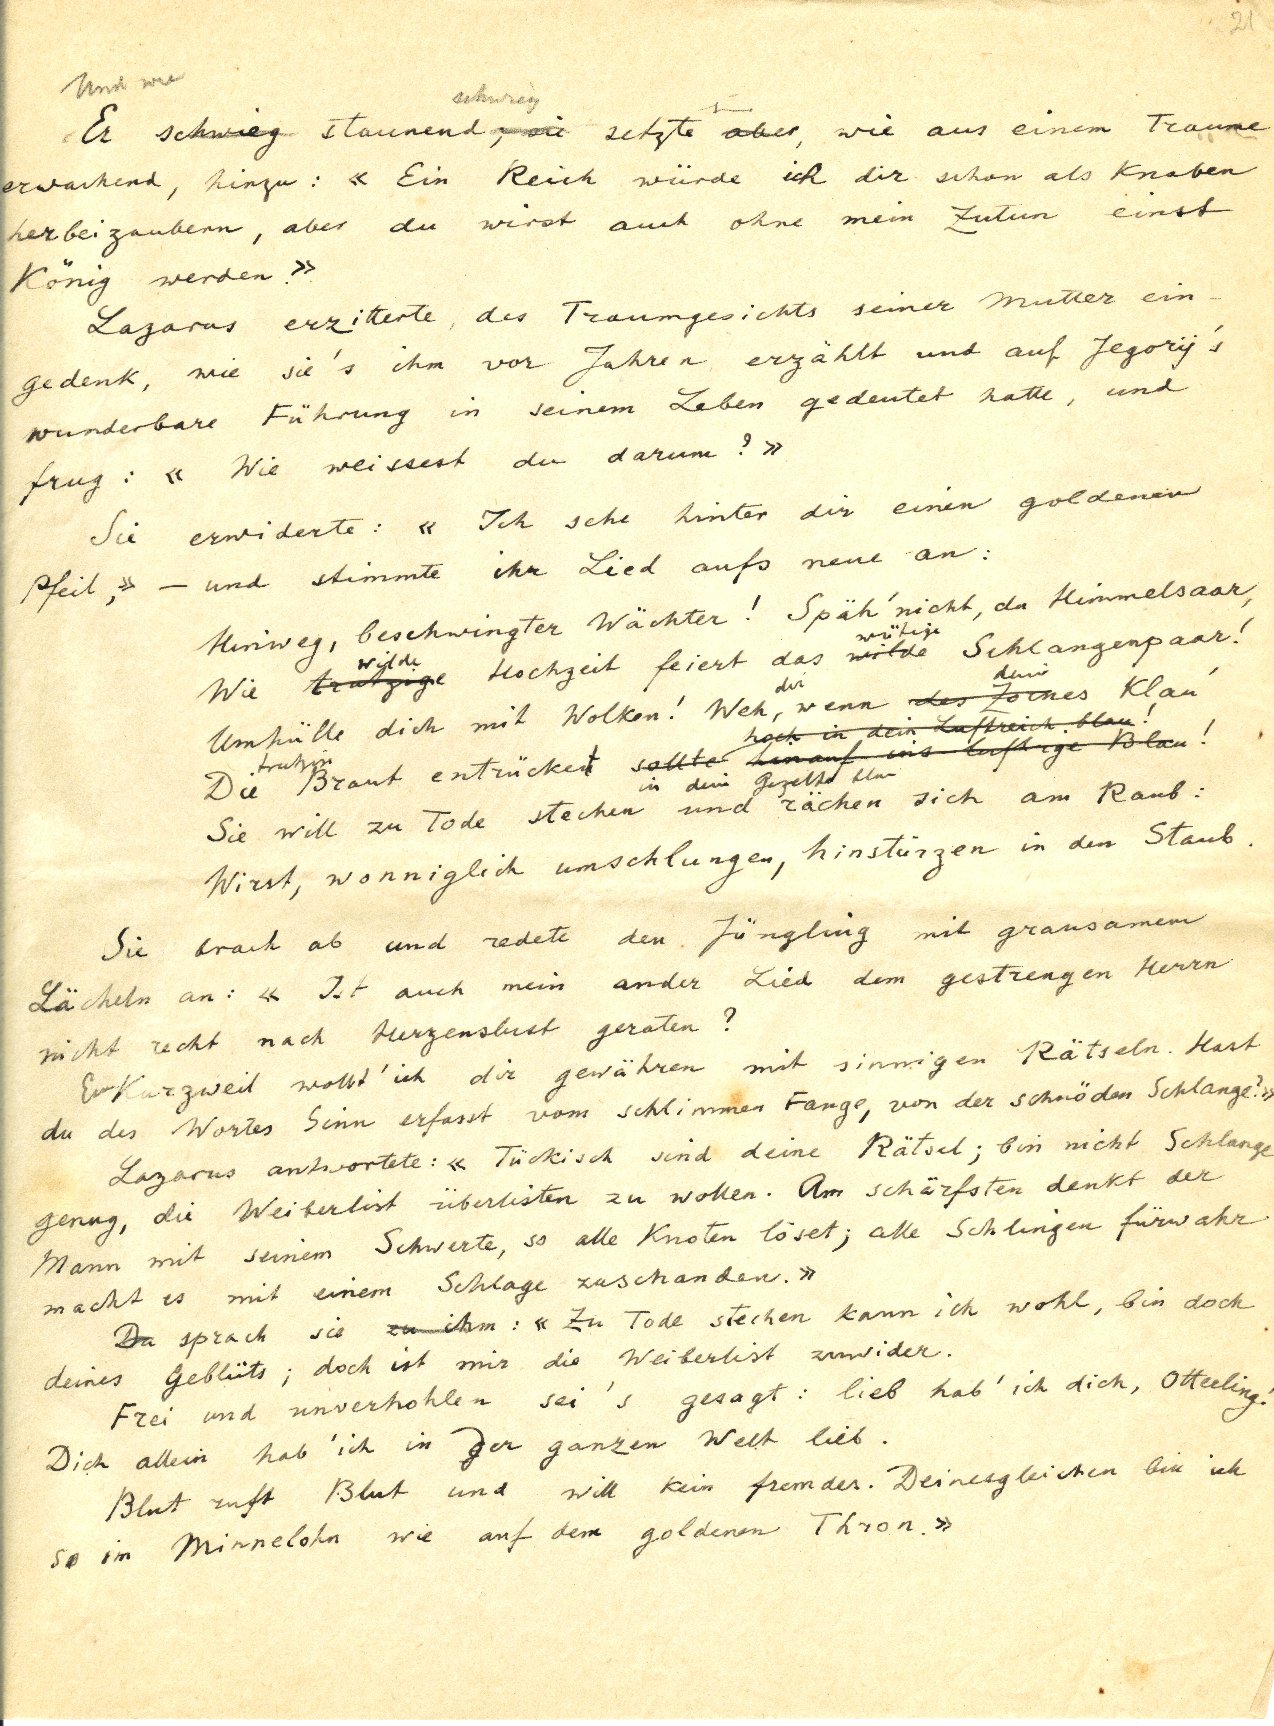 21
Und wie
schwieg
Er schwieg staunend, sie setzte aber, wie aus einem Traume
erwachend, hinzu: « Ein Reich würde ich dir schon als Knaben
herbeizaubern, aber du wirst auch ohne mein Zutun einst
König werden.»
Lazarus erzitterte, des Traumgesichts seiner Mutter ein-
gedenk, wie sie's ihm vor Jahren erzählt und auf Jegorij's
wunderbare Führung in seinem Leben gedeutet hatte, und
frug: « Wie weissest du darum?»
Sie erwiderte: « Ich sehe hinter dir einen goldenen
Pfeil,» — und stimmte ihr Lied aufs neue an:
Hinweg, beschwingter Wächter! Späh' nicht, du Himmelsaar,
wilde wütige
Wie trutzige Hochzeit feiert das wilde Schlangenpaar!
dir dein
Umhülle dich mit Wolken! Weh, wenn des Zornes Klau'
hoch in dein Luftreich blau!
trutzig
Die Braut entrücket sollte hinauf ins luftige Blau!
in dein Gezelte blau
Sie will zu Tode stechen und rächen sich am Raub:
Wirst, wonniglich umschlungen, hinstürzen in den Staub.
Sie brach ab und redete den Jüngling mit grausamem
Lächeln an: « Ist auch mein ander Lied dem gestrengen Herrn
nicht recht nach Herzenslust geraten?
Kurzweil wollt' ich dir gewähren mit sinnigen Rätseln. Hast
du des Wortes Sinn erfasst vom schlimmen Fange, von der schnöden Schlange?»
Lazarus antwortete: « Tückisch sind deine Rätsel; bin nicht Schlange
genug, die Weiberlist überlisten zu wollen. Am schärfsten denkt der
Mann mit seinem Schwerte, so alle Knoten löset; alle Schlingen fürwahr
macht es mit einem Schlage zuschanden.»
Da sprach sie zu ihm: « Zu Tode stechen kann ich wohl, bin doch
deines Geblüts; doch ist mir die Weiberlist zuwider.
Frei und unverhohlen sei's gesagt: lieb hab' ich dich, Otterling!
Dich allein hab' ich in der ganzen Welt lieb.
Blut ruft Blut und will kein fremdes. Deinesgleichen bin ich
so im Minnelohn wie auf dem goldenen Thron.»